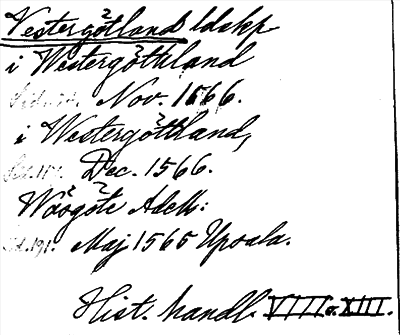 Vestergötland ldskp
i Westergöthland
Nov. 1566.
i Westergöttland,
Dec. 1566.
Wäsgöte Adell:
Maj 1565 Upsala.
Hist. handl. VIII o. XIII.